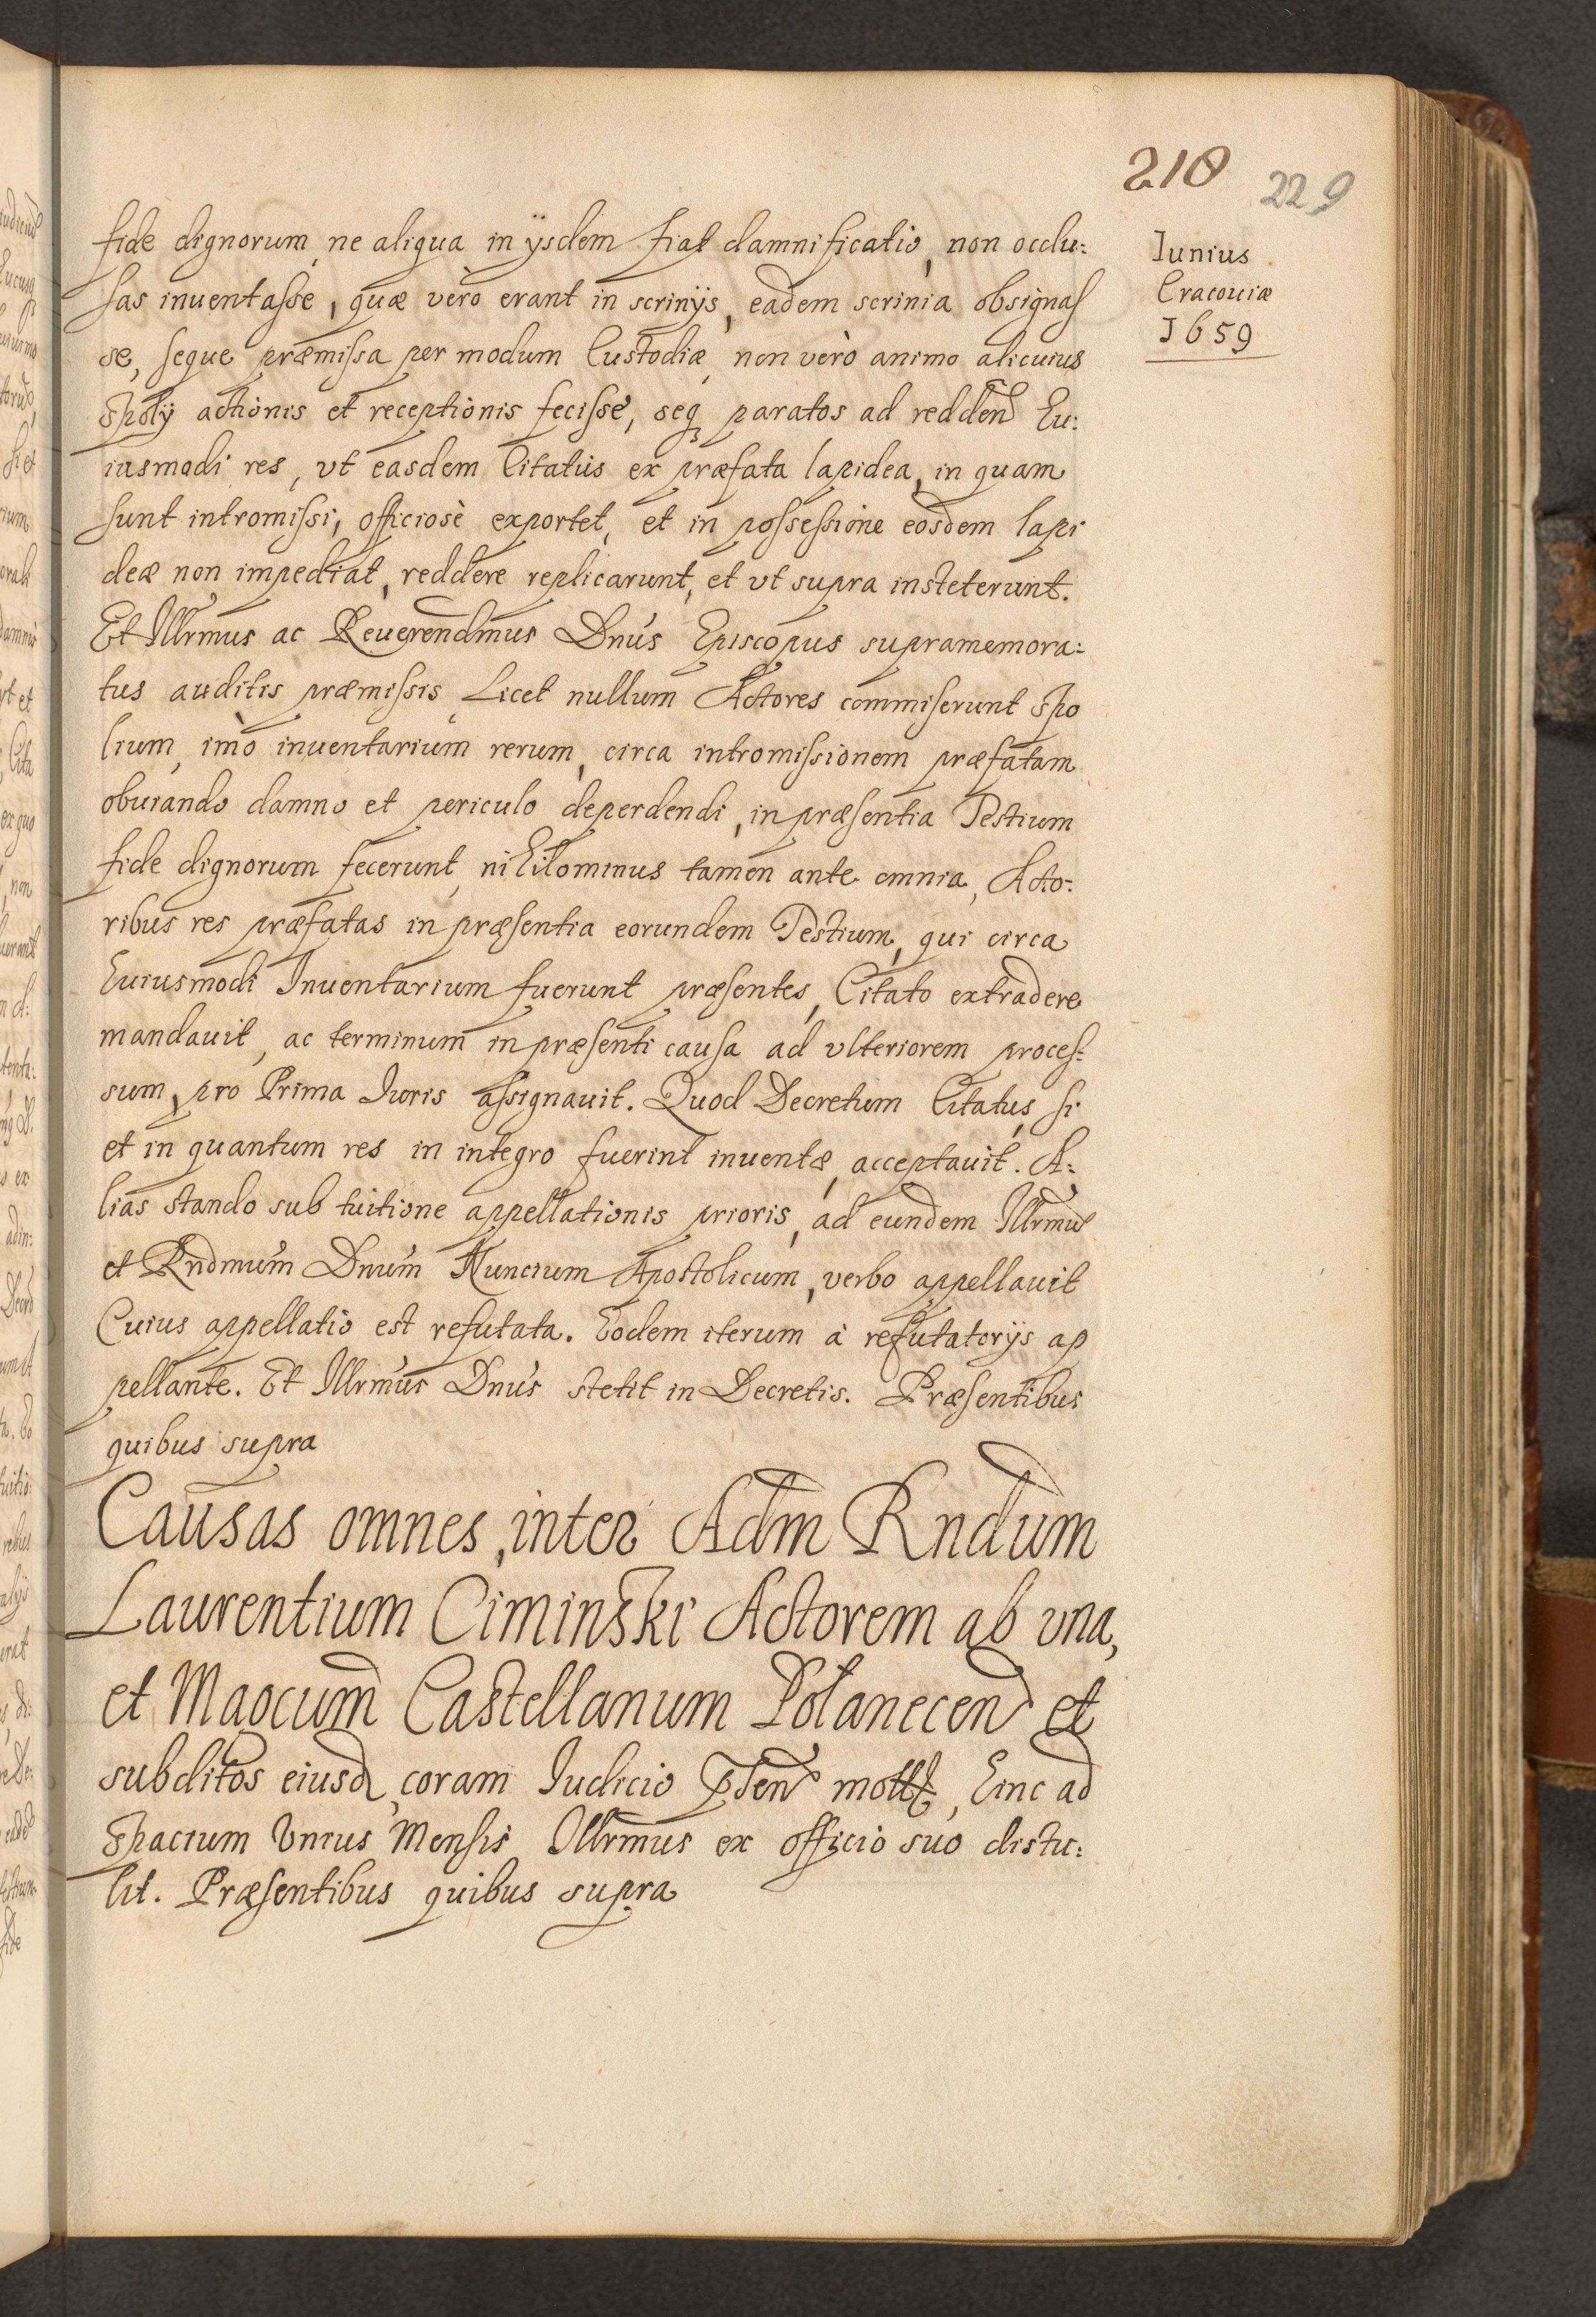 218 229
Iunius
Cracouiæ
1659
fide dignorum, ne aliqua in ÿsdem fiat damnificatio, non occlu:
sas inuentasse, quæ verò erant in scrinÿs, eadem scrinia obsignas
se, seque præmissa per modum Custodiæ, non verò animo alicuius
spolÿ actionis et receptionis fecisse, seq₃ paratos ad redden̄ hu:
iusmodi res, vt easdem Citatus ex præfata lapidea, in quam
sunt intromissi, officiosè exportet, et in possessione eosdem lapi
deæ non impediat, reddere replicarunt, et vt supra insteterunt.
Et Illrmus ac Reuerendmus Dnus Episcopus supramemora:
tus auditis præmissis, Licet nullum Actores commiserunt spo
lium, imò inuentarium rerum, circa intromissionem præfatam
obuiando damno et periculo deperdendi, in præsentia Testium
fide dignorum fecerunt, nihilominus tamen ante omnia, Acto:
ribus res præfatas in præsentia eorundem Testium, qui circa
huiusmodi Inuentarium fuerunt præsentes, Citato extradere
mandauit, ac terminum in præsenti causa ad vlteriorem proces:
sum, pro Prima Iuris assignauit. Quod Decretum Citatus, si
et in quantum res in integro fuerint inuentæ, acceptauit. A:
lias stando sub tuitione appellationis prioris, ad eundem Illrmū
et Rndmum Dnum Nuncium Apostolicum, verbo appellauit
Cuius appellatio est refutata. Eodem iterum à refutatorÿs ap
pellante. Et Illrmus Dnus stetit in Decretis. Præsentibus
quibus supra
Causas omnes, inter Adm Rndum
Laurentium Ciminski Actorem ab vna,
et Magcum Castellanum Polanecen et
subditos eiusd, coram Iudicio p̄sen, hinc ad
spacium Vnius Mensis Illrmus ex officio suo distu:
lit. Præsentibus quibus supra